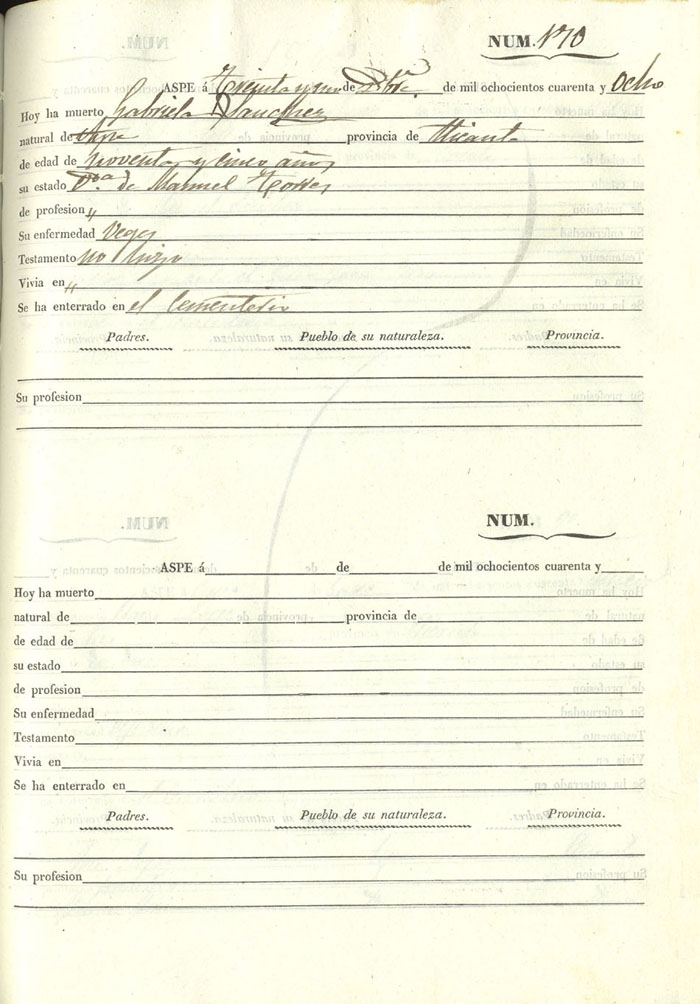 NUM. 170
ASPE á Treinta y uno de Dbre. de mil ochocientos cuarenta y Ocho
Hoy ha muerto Gabriela Sanchez
natural de Aspe provincia de Alicante
de edad de Noventa y cinco años
su estado Vda. de Manuel Torres
de profesion "
Su enfermedad Vegez
Testamento no hizo
Vivia en "
Se ha enterrado en el Cementerio
Padres. Pueblo de su naturaleza. Provincia.
Su profesion
NUM.
ASPE á de de mil ochocientos cuarenta y
Hoy ha muerto
natural de provincia de
de edad de
su estado
de profesion
Su enfermedad
Testamento
Vivia en
Se ha enterrado en
Padres. Pueblo de su naturaleza. Provincia.
Su profesion